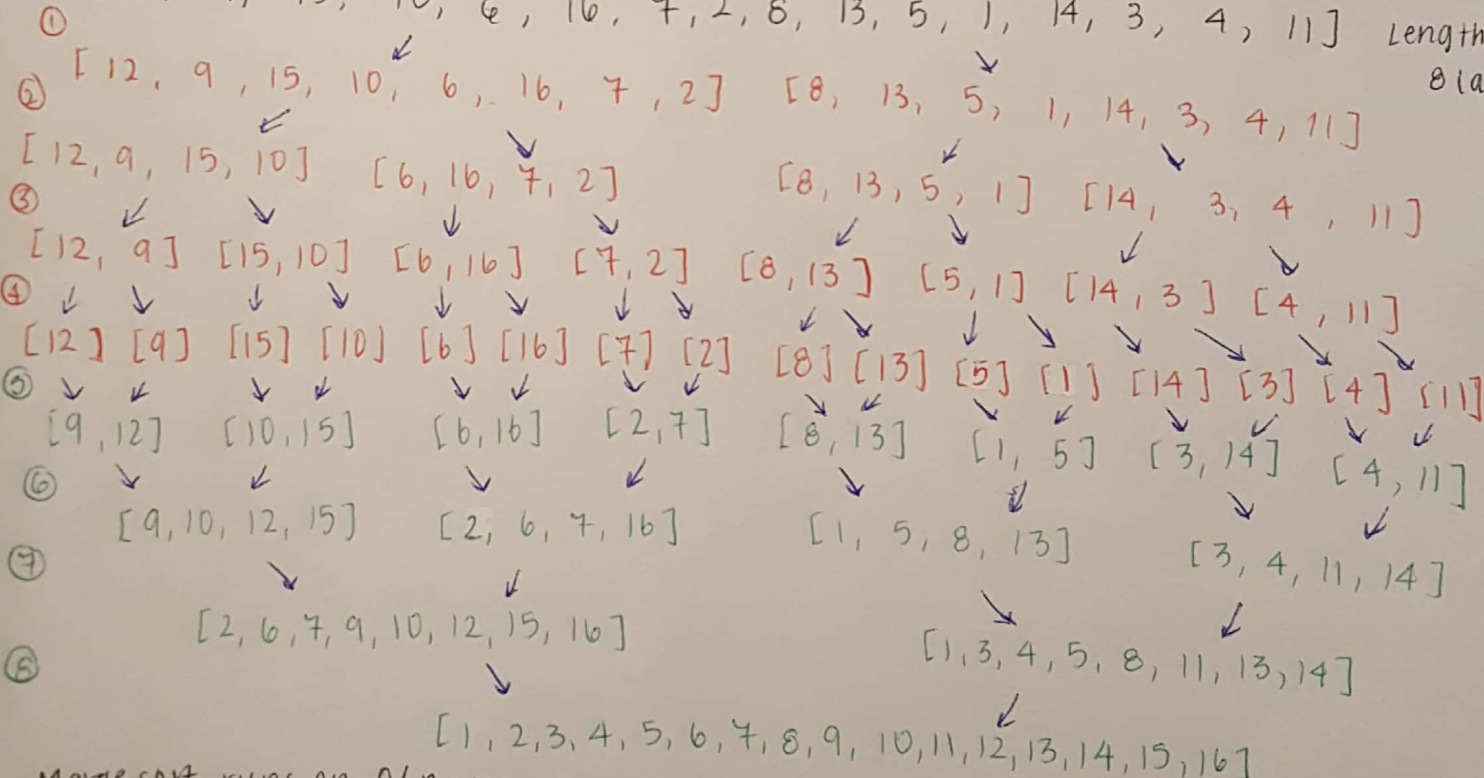 ①
6, 16, 7, 2, 8, 13, 5, 1, 14, 3, 4, 11] Length
8 (a
[12, 9, 15, 10, 6, 16, 7, 2] [8, 13, 5, 1, 14, 3, 4, 11]
②
[12, 9, 15, 10] [6, 16, 7, 2] [8, 13, 5, 1] [14, 3, 4, 11]
③
[12, 9] [15, 10] [6, 16] [7, 2] [8, 13] [5, 1] [14, 3] [4, 11]
④
[12] [9] [15] [10] [6] [16] [7] [2] [8] [13] [5] [1] [14] [3] [4] [11]
⑤
[9, 12] [10, 15] [6, 16] [2, 7] [8, 13] [1, 5] [3, 14] [4, 11]
⑥
[9, 10, 12, 15] [2, 6, 7, 16] [1, 5, 8, 13] [3, 4, 11, 14]
⑦
[2, 6, 7, 9, 10, 12, 15, 16] [1, 3, 4, 5, 8, 11, 13, 14]
⑧
[1, 2, 3, 4, 5, 6, 7, 8, 9, 10, 11, 12, 13, 14, 15, 16]